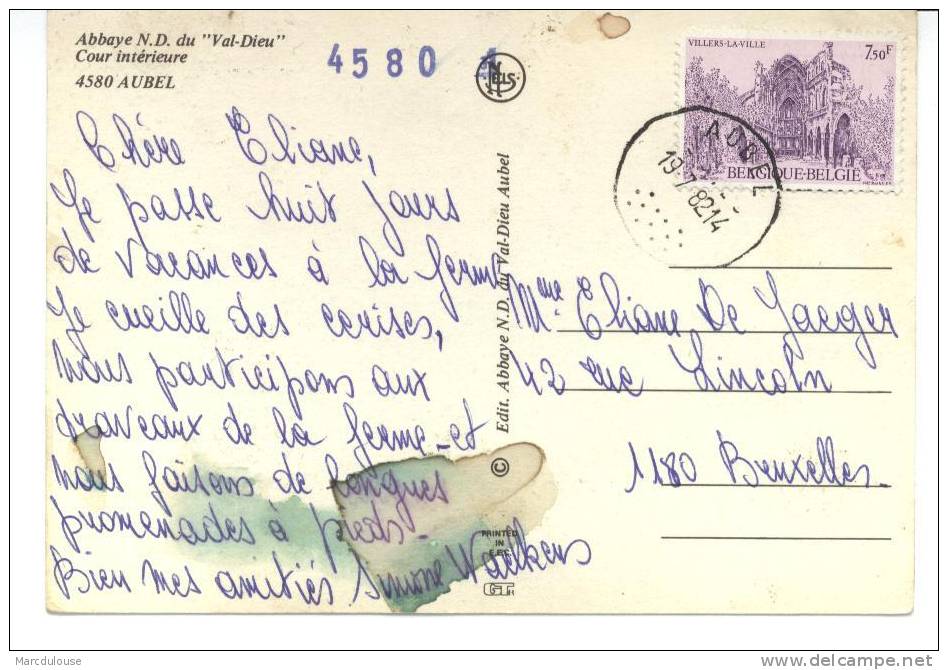 Abbaye N.D. du "Val-Dieu"
Cour intérieure
4580 AUBEL
4580 1
NELS
VILLERS-LA-VILLE
7,50F
BELGIQUE-BELGIË
AUBEL
19-7-8214
Chère Eliane,
Je passe huit jours
de vacances à la ferme
Je cueille des cerises,
nous participons aux
traveaux de la ferme_et
nous faisons de longues
promenades à pieds_
Bien mes amitiés Simone Walkers
Edit. Abbaye N.D. du Val-Dieu Aubel
©
PRINTED
IN
E.E.C.
Mme Eliane De Jaeger
42 rue Lincoln
1180 Bruxelles_
Marcdulouse